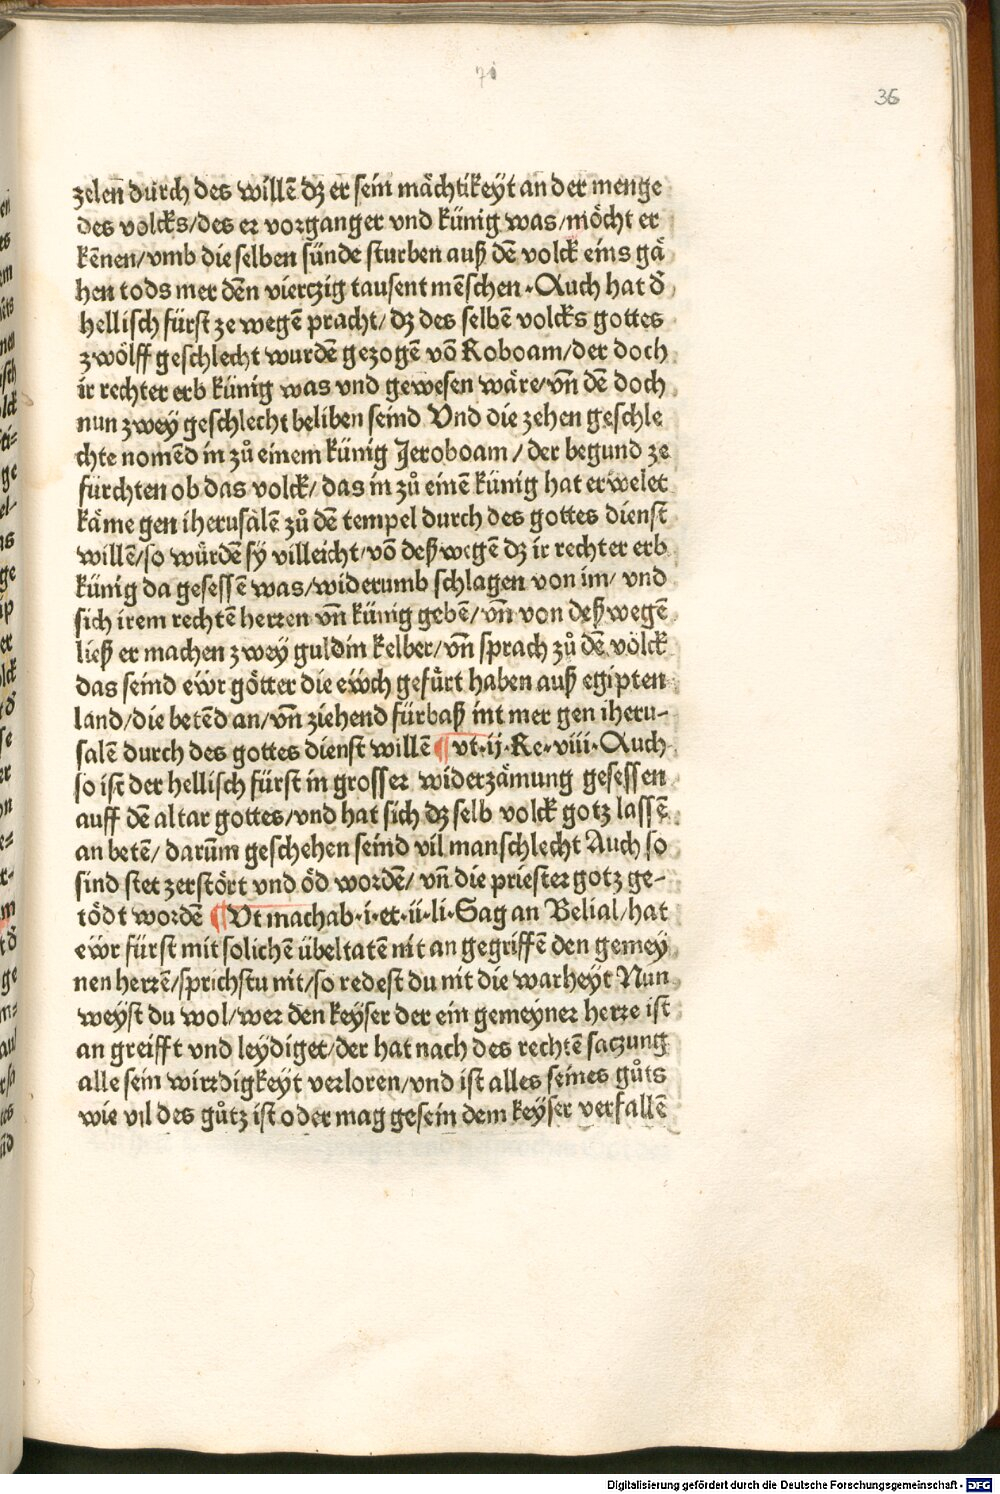 71
36
zelen̄ durch des willē dz er sein mächtikeyt an der menge
des volcks/des er vorganger vnd künig was/möcht er
kēnen/vmb die selben sünde sturben auß dē volck eins gä
hen tods mer dēn vierczig tausent mēschen·Auch hat đ
hellisch fürst ze wegē pracht/ dz des selbē volcks gottes
zwölff geschlecht wurdē gezogē vō Roboam/der doch
ir rechter erb künig was vnd gewesen wäre/vn̄ dē doch
nun zwey geschlecht beliben seind Vnd die zehen geschle
chte nomēd in zů einem künig Jeroboam/ der begund ze
fürchten ob das volck/ das in zů einē künig hat erwelet
käme gen iherusalē zů dē tempel durch des gottes dienst
willē/so würdē sÿ villeicht/vō deßwegē dz ir rechter erb
künig da gesessē was/widerumb schlagen von im/ vnd
sich irem rechtē herren vn̄ künig gebē/vn̄ von deßwegē
ließ er machen zwey guldin kelber/vn̄ sprach zů dē völck
das seind ewr götter die ewch gefůrt haben auß egipten
land/die betēd an/vn̄ ziehend fürbaß int mer gen iheru-
salē durch des gottes dienst willē ¶ vt·ij·Re·viii·Auch
so ist der hellisch fürst in grosser widerzämung gesessen
auff dē altar gottes/vnd hat sich dz selb volck gotz lassē
an betē/ darūm geschehen seind vil manschlecht Auch so
sind stet zerstört vnd öd wordē/ vn̄ die priester gotz ge-
tödt wordē ¶ Vt machab·i·et·ii·li·Sag an Belial/hat
ewr fürst mit solichē übeltatē nit an gegriffē den gemey
nen herrē/sprichstu nit/so redest du nit die warheyt Nun
weyst du wol/wer den keyser der ein gemeyner herre ist
an greifft vnd leydiget/der hat nach des rechtē saczung
alle sein wirrdigkeyt verloren/vnd ist alles seines gůts
wie vil des gůtz ist oder mag gesein dem keyser verfallē
Digitalisierung gefördert durch die Deutsche Forschungsgemeinschaft - DFG